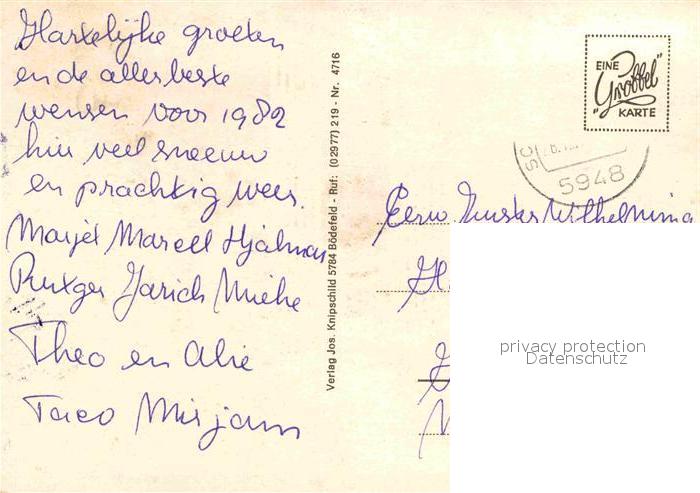 Hartelijke groeten
en de allerbeste
wensen voor 1982
hier veel sneeuw
en prachtig weer.
Marjet Marcell Hjalmar
Rutger Jarich Mieke
Theo en Alie
Taco Mirjam
Verlag Jos. Knipschild 5784 Bödefeld - Ruf: (02977) 219 - Nr. 4716
EINE
"Grobbel"
KARTE
5948
Eerw. Zuster Wilhelmina
privacy protection
Datenschutz